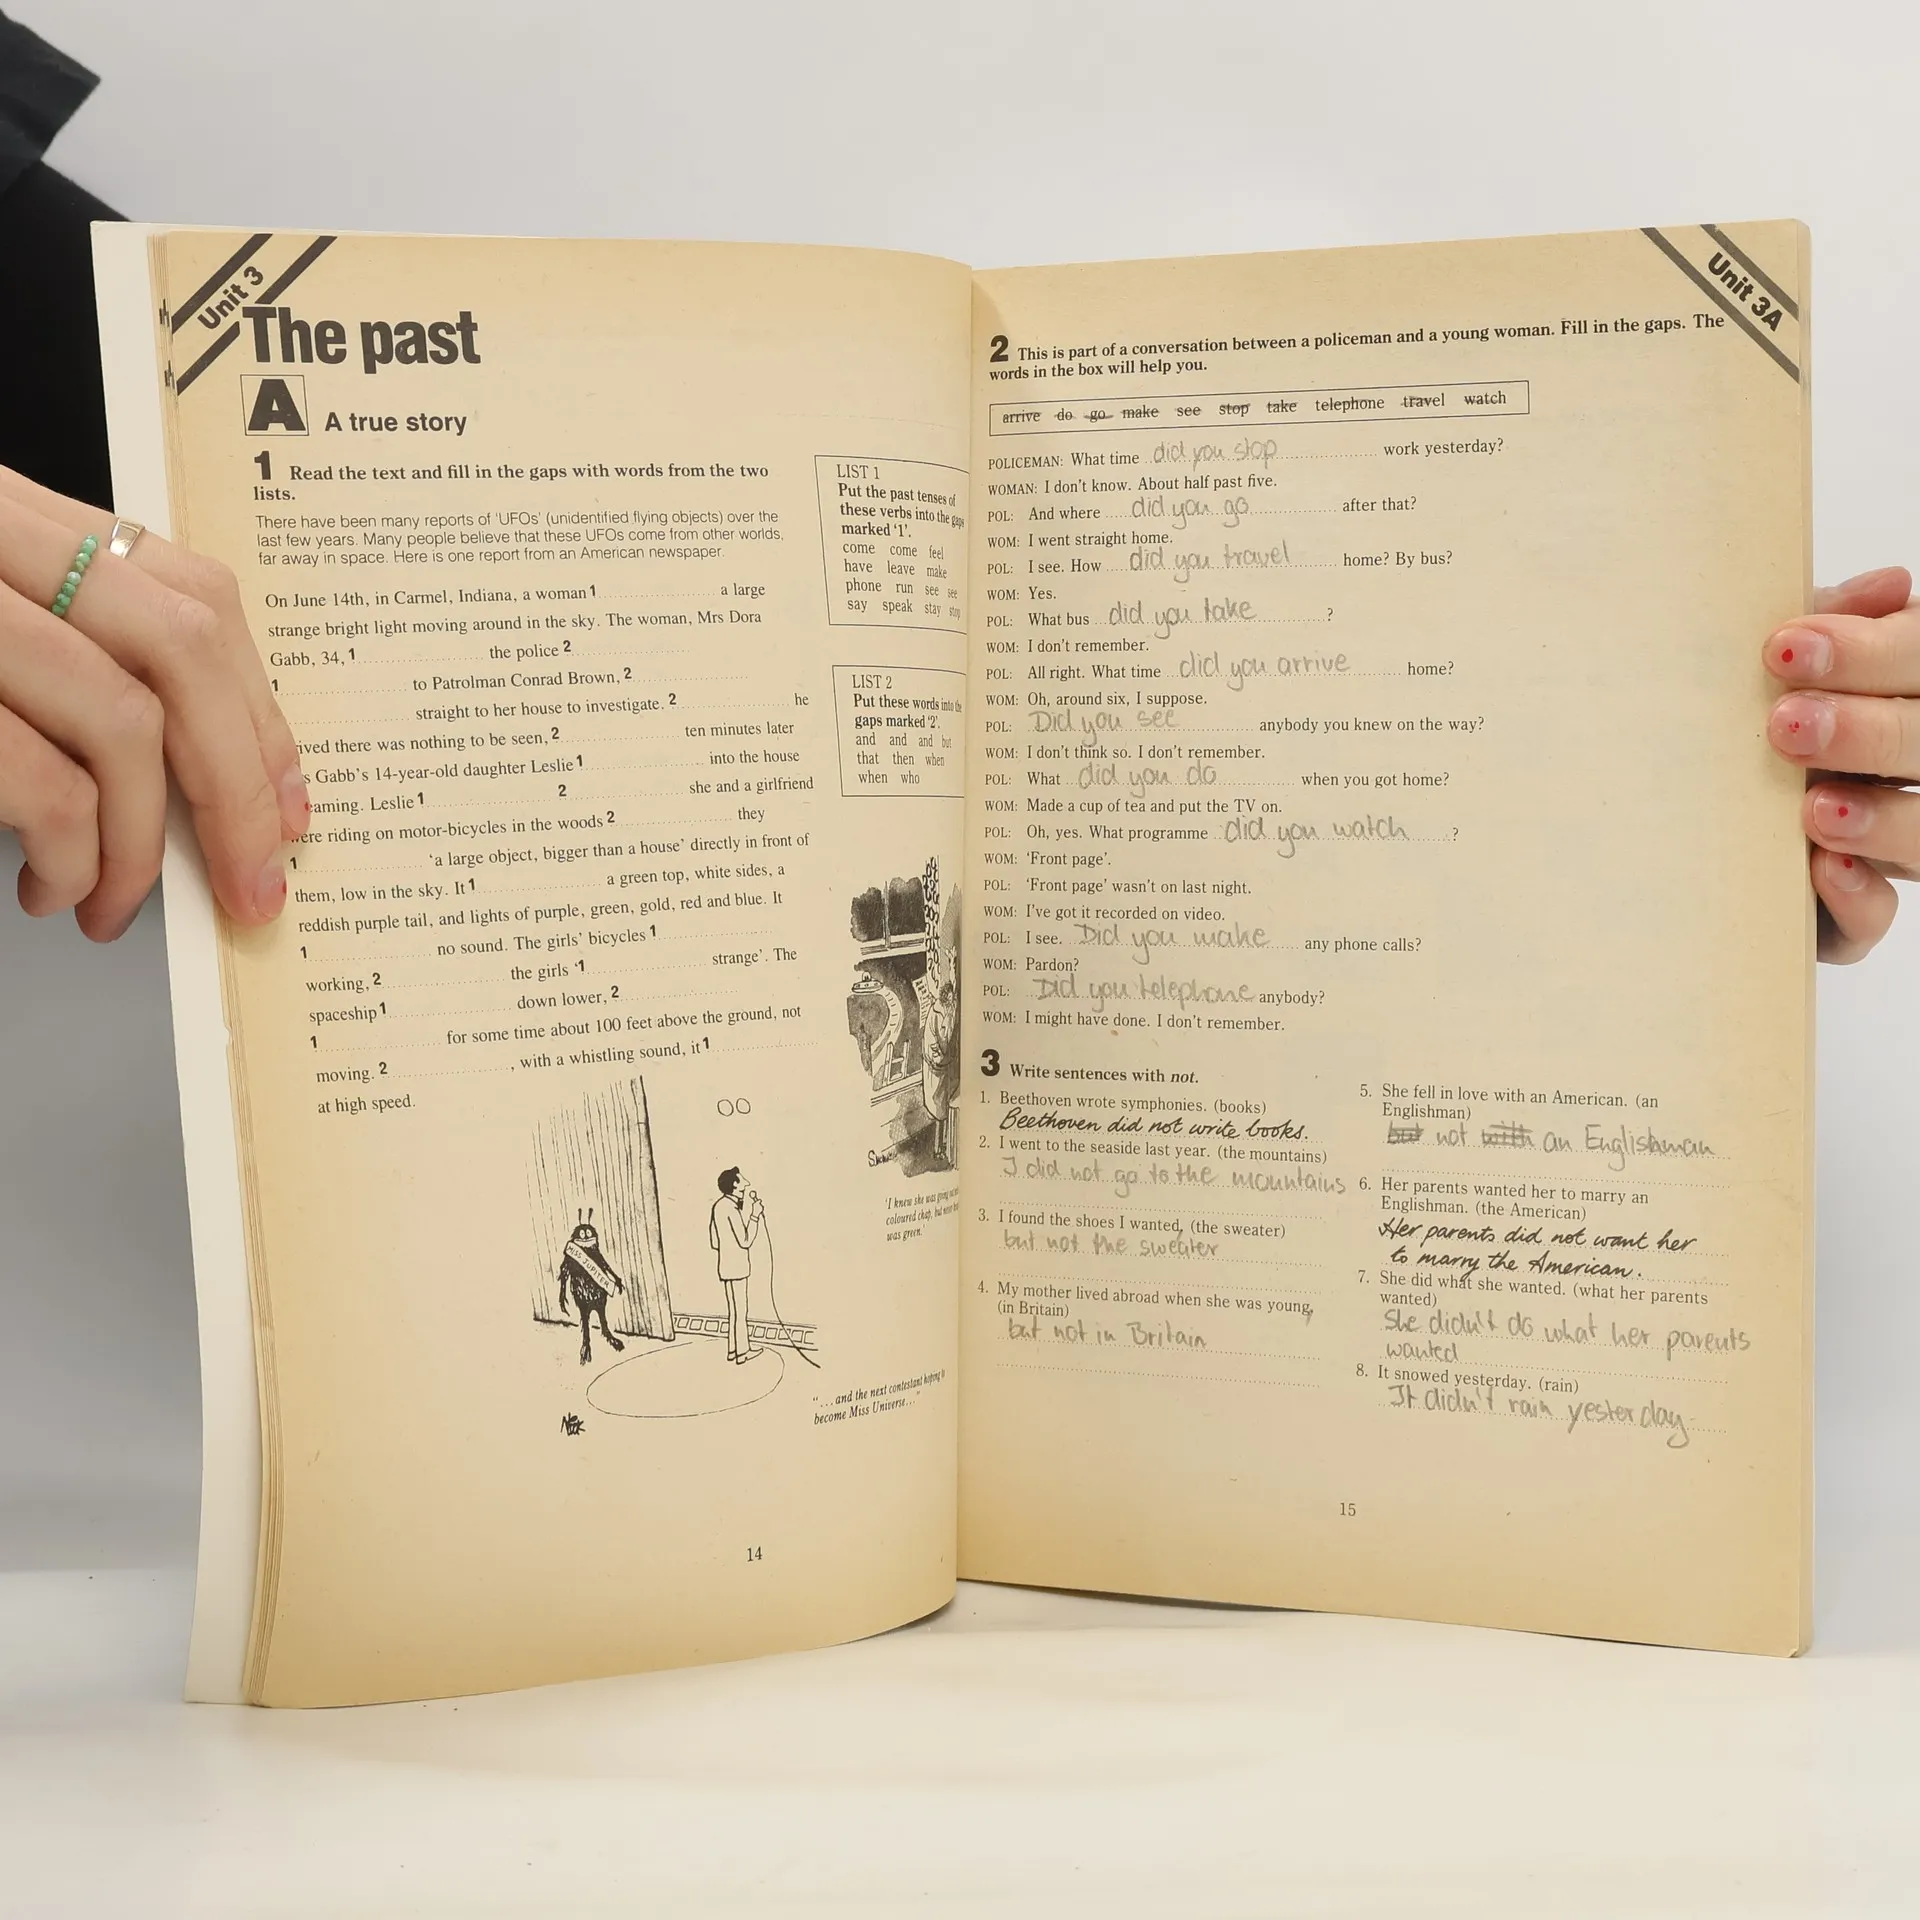 Unit 3
The past
A A true story
1 Read the text and fill in the gaps with words from the two
lists.
There have been many reports of 'UFOs' (unidentified flying objects) over the
last few years. Many people believe that these UFOs come from other worlds,
far away in space. Here is one report from an American newspaper.
On June 14th, in Carmel, Indiana, a woman 1 a large
strange bright light moving around in the sky. The woman, Mrs Dora
Gabb, 34, 1 the police 2
1 to Patrolman Conrad Brown, 2
straight to her house to investigate. 2 he
ived there was nothing to be seen, 2 ten minutes later
s Gabb's 14-year-old daughter Leslie 1 into the house
eaming. Leslie 1 2 she and a girlfriend
ere riding on motor-bicycles in the woods 2 they
1 'a large object, bigger than a house' directly in front of
them, low in the sky. It 1 a green top, white sides, a
reddish purple tail, and lights of purple, green, gold, red and blue. It
1 no sound. The girls' bicycles 1
working, 2 the girls '1 strange'. The
spaceship 1 down lower, 2
1 for some time about 100 feet above the ground, not
moving. 2 , with a whistling sound, it 1
at high speed.
LIST 1
Put the past tenses of
these verbs into the gaps
marked '1'.
come come feel
have leave make
phone run see see
say speak stay stop
LIST 2
Put these words into the
gaps marked '2'.
and and and but
that then when
when who
'I knew she was going
coloured chap, but
was green.'
MISS JUPITER
"...and the next contestant hoping to
become Miss Universe..."
14
Unit 3A
2 This is part of a conversation between a policeman and a young woman. Fill in the gaps. The
words in the box will help you.
arrive do go make see stop take telephone travel watch
POLICEMAN: What time did you stop work yesterday?
WOMAN: I don't know. About half past five.
POL: And where did you go after that?
WOM: I went straight home.
POL: I see. How did you travel home? By bus?
WOM: Yes.
POL: What bus did you take ?
WOM: I don't remember.
POL: All right. What time did you arrive home?
WOM: Oh, around six, I suppose.
POL: Did you see anybody you knew on the way?
WOM: I don't think so. I don't remember.
POL: What did you do when you got home?
WOM: Made a cup of tea and put the TV on.
POL: Oh, yes. What programme did you watch ?
WOM: 'Front page'.
POL: 'Front page' wasn't on last night.
WOM: I've got it recorded on video.
POL: I see. Did you make any phone calls?
WOM: Pardon?
POL: Did you telephone anybody?
WOM: I might have done. I don't remember.
3 Write sentences with not.
1. Beethoven wrote symphonies. (books)
Beethoven did not write books.
2. I went to the seaside last year. (the mountains)
I did not go to the mountains
3. I found the shoes I wanted, (the sweater)
but not the sweater
4. My mother lived abroad when she was young,
(in Britain)
but not in Britain
5. She fell in love with an American. (an
Englishman)
but not with an Englishman
6. Her parents wanted her to marry an
Englishman. (the American)
Her parents did not want her
to marry the American.
7. She did what she wanted. (what her parents
wanted)
She didn't do what her parents
wanted
8. It snowed yesterday. (rain)
It didn't rain yesterday
15